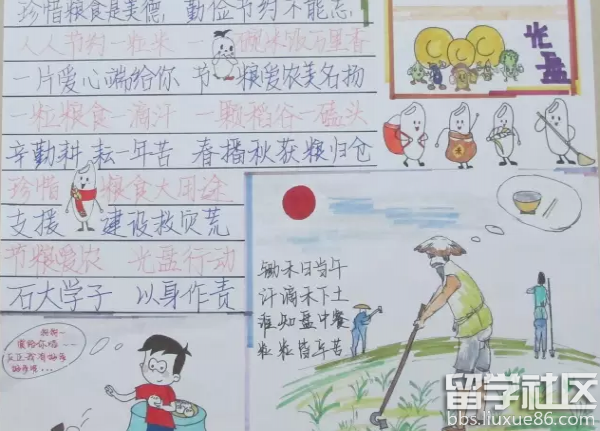 珍惜粮食是美德 勤俭节约不能忘
人人节约一粒米 一碗米饭万里香
一片爱心端给你 节粮爱农美名扬
一粒粮食一滴汗 一颗稻谷一磕头
辛勤耕耘一年苦 春播秋获粮归仓
珍惜粮食大用途
支援建设救灾荒
节粮爱农 光盘行动
石大学子 以身作责
光盘
锄禾日当午
汗滴禾下土
谁知盘中餐
粒粒皆辛苦
留学社区
bbs.liuxue86.com